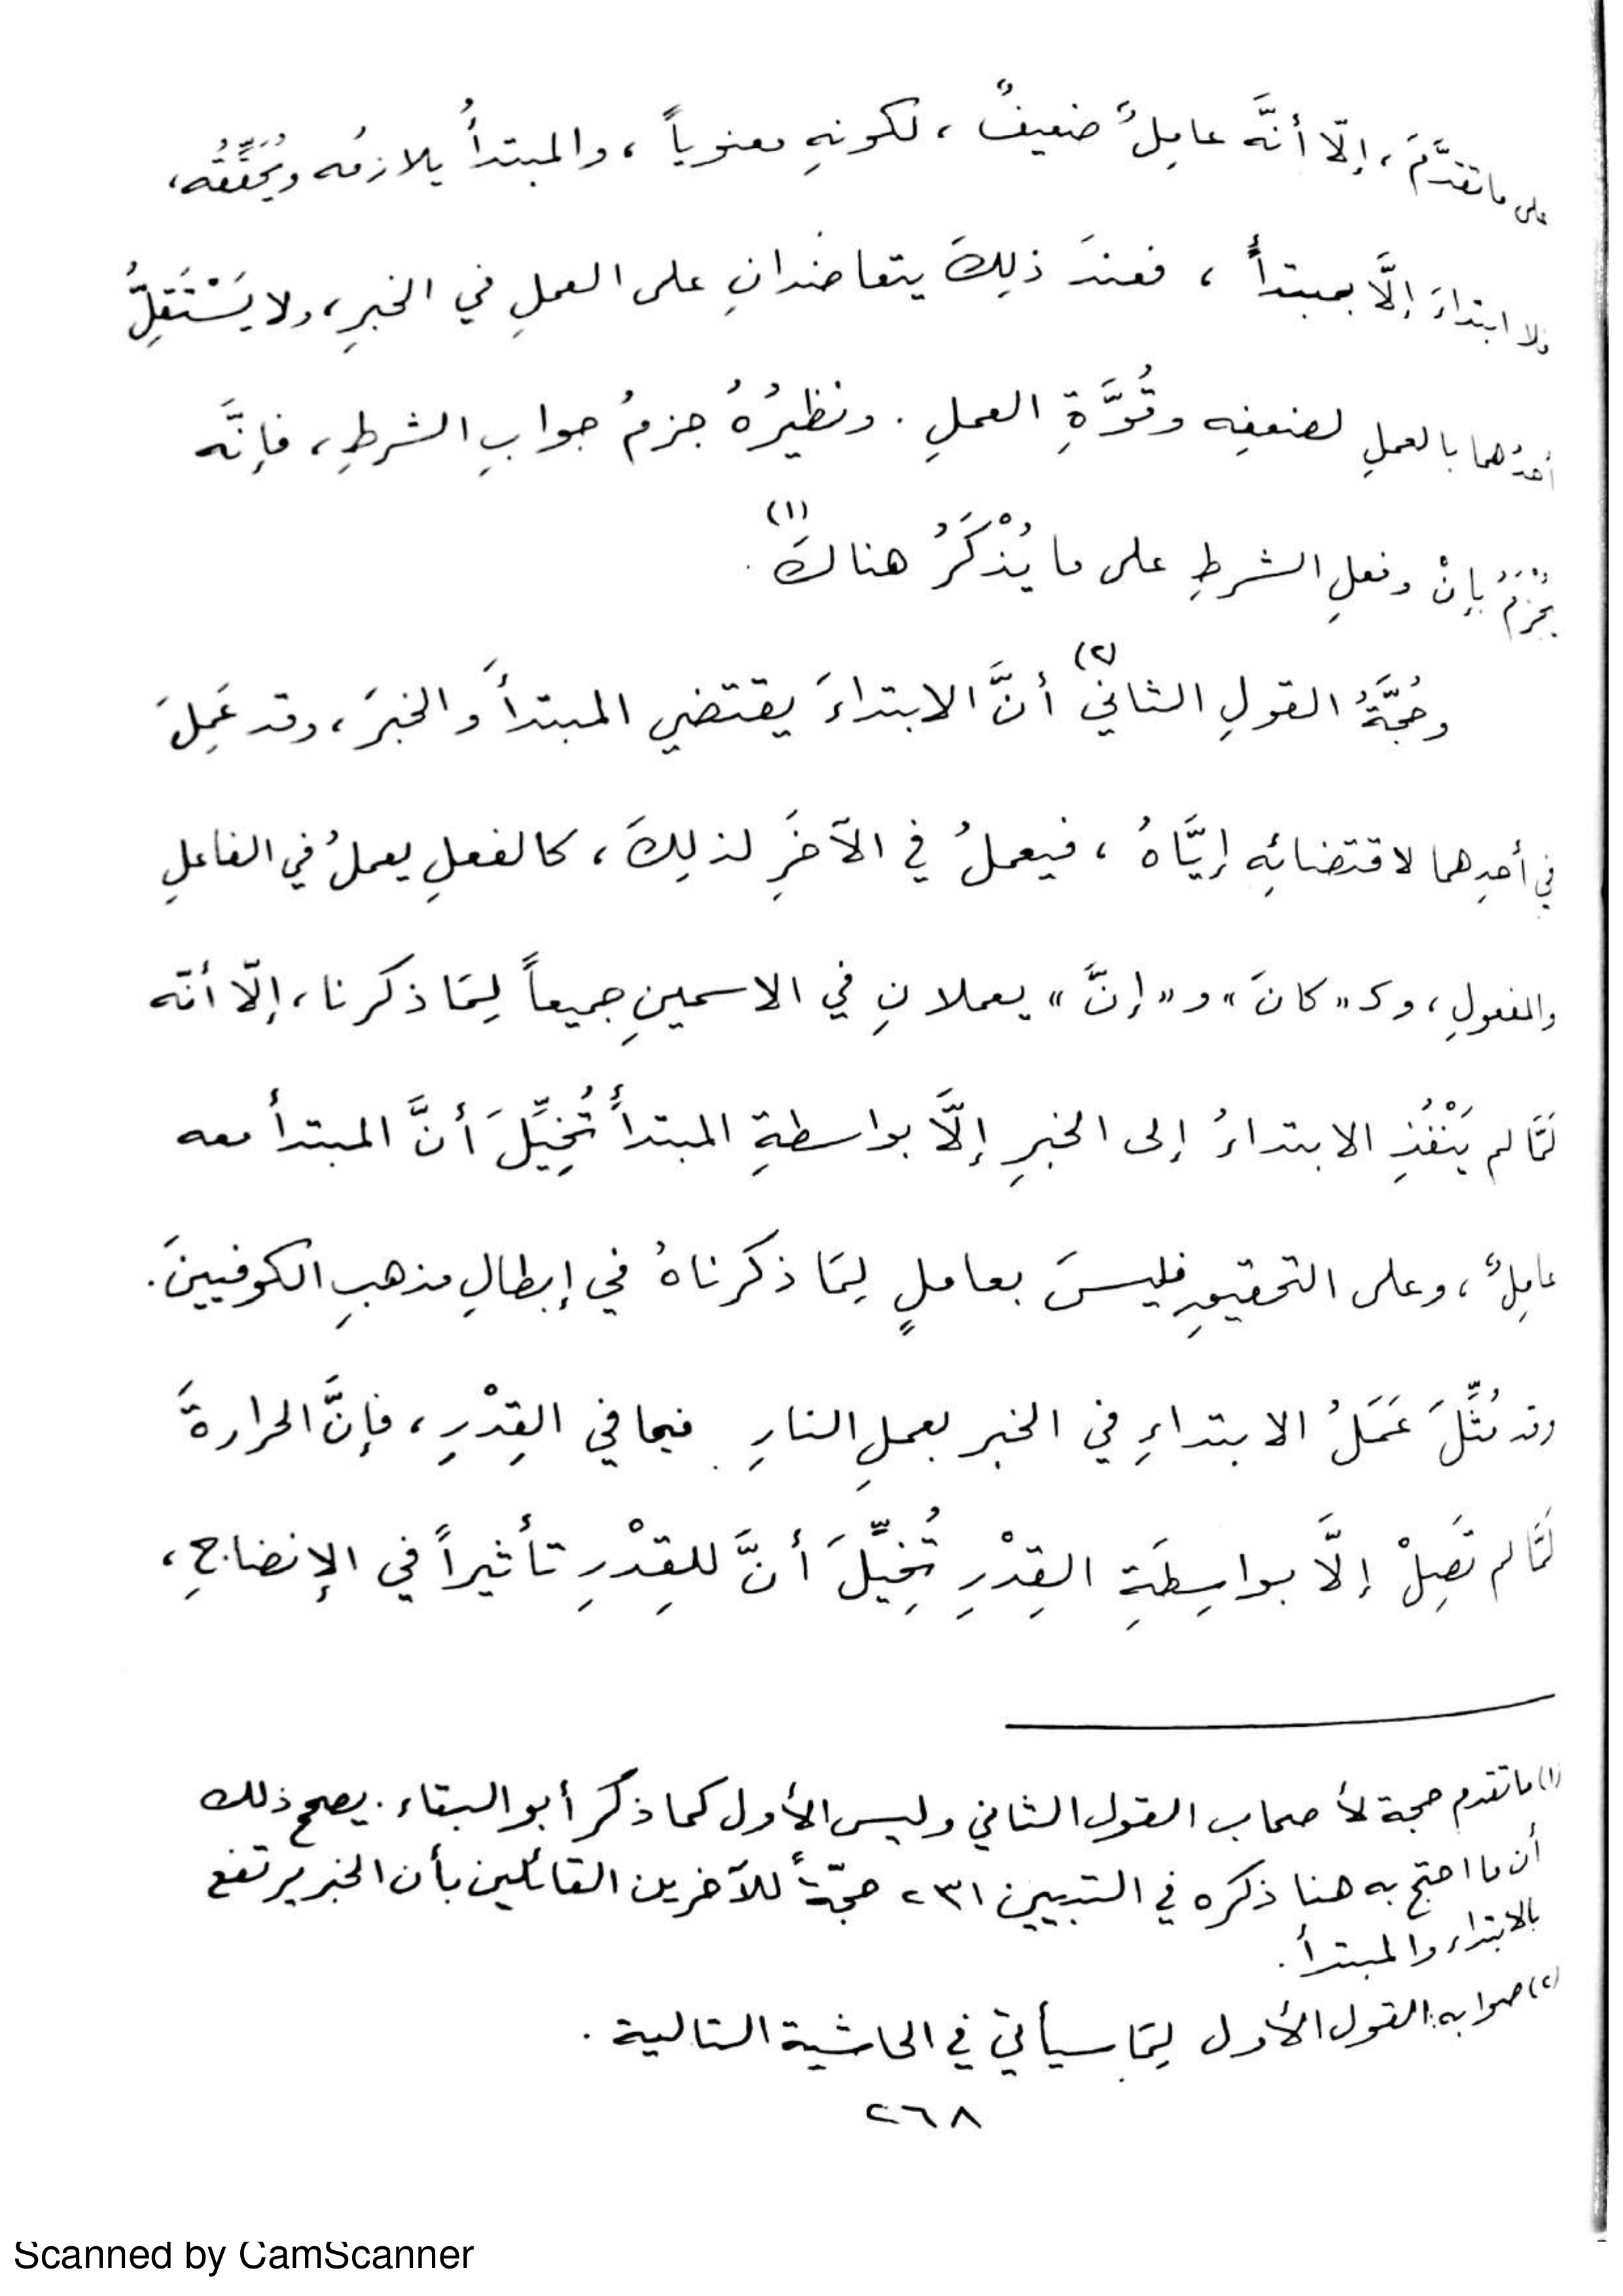 على ما تقدَّمَ، إلّا أنَّه عامِلٌ ضعيفٌ، لكونِهِ معنوياً، والمبتدأُ يلازمُه ويُحَقِّقُه،
ولا ابتداءَ إلَّا بمبتدأٍ، فعندَ ذلِكَ يتعاضدانِ على العملِ في الخبرِ، ولا يَسْتَقِلُّ
أحدُهما بالعملِ لضعفِه وقُوَّةِ العملِ. ونظيرُهُ جزمُ جوابِ الشرطِ، فإنَّه
يُجْزَمُ بإنْ وفعلِ الشرطِ على ما يُذْكَرُ هناكَ(١).
وحُجَّةُ القولِ الثاني(٢) أنَّ الابتداءَ يقتضي المبتدأَ والخبرَ، وقد عَمِلَ
في أحدِهما لاقتضائِه إيَّاهُ، فيعملُ في الآخَرِ لذلِكَ، كالفعلِ يعملُ في الفاعلِ
والمفعولِ، وكـ «كانَ» و«إنَّ» يعملانِ في الاسمينِ جميعاً لِمَا ذكرنا، إلّا أنّه
لمَّا لم يَنْفُذِ الابتداءُ إلى الخبرِ إلَّا بواسطةِ المبتدأِ تُخُيِّلَ أنَّ المبتدأ معه
عامِلٌ، وعلى التحقيقِ فليسَ بعاملٍ لِمَا ذكرناهُ في إبطالِ مذهبِ الكوفيينَ.
وقد مُثِّلَ عَمَلُ الابتداءِ في الخبر بعملِ النارِ فيما في القِدْرِ، فإنَّ الحرارةَ
لمَّا لم تَصِلْ إلَّا بواسِطَةِ القِدْرِ تُخُيِّلَ أنَّ للقِدْرِ تأثيراً في الإنضاجِ،
(١) ما تقدم حجة لأصحاب القول الثاني وليس الأول كما ذكر أبو البقاء. يصحح ذلك
أن ما احتج به هنا ذكره في التبيين ٢٣١ حجّةً للآخرين القائلين بأن الخبر يرتفع
بالابتداء والمبتدأ.
(٢) صوابه: القول الأول لِمَا سيأتي في الحاشية التالية.
٢٦٨
Scanned by CamScanner